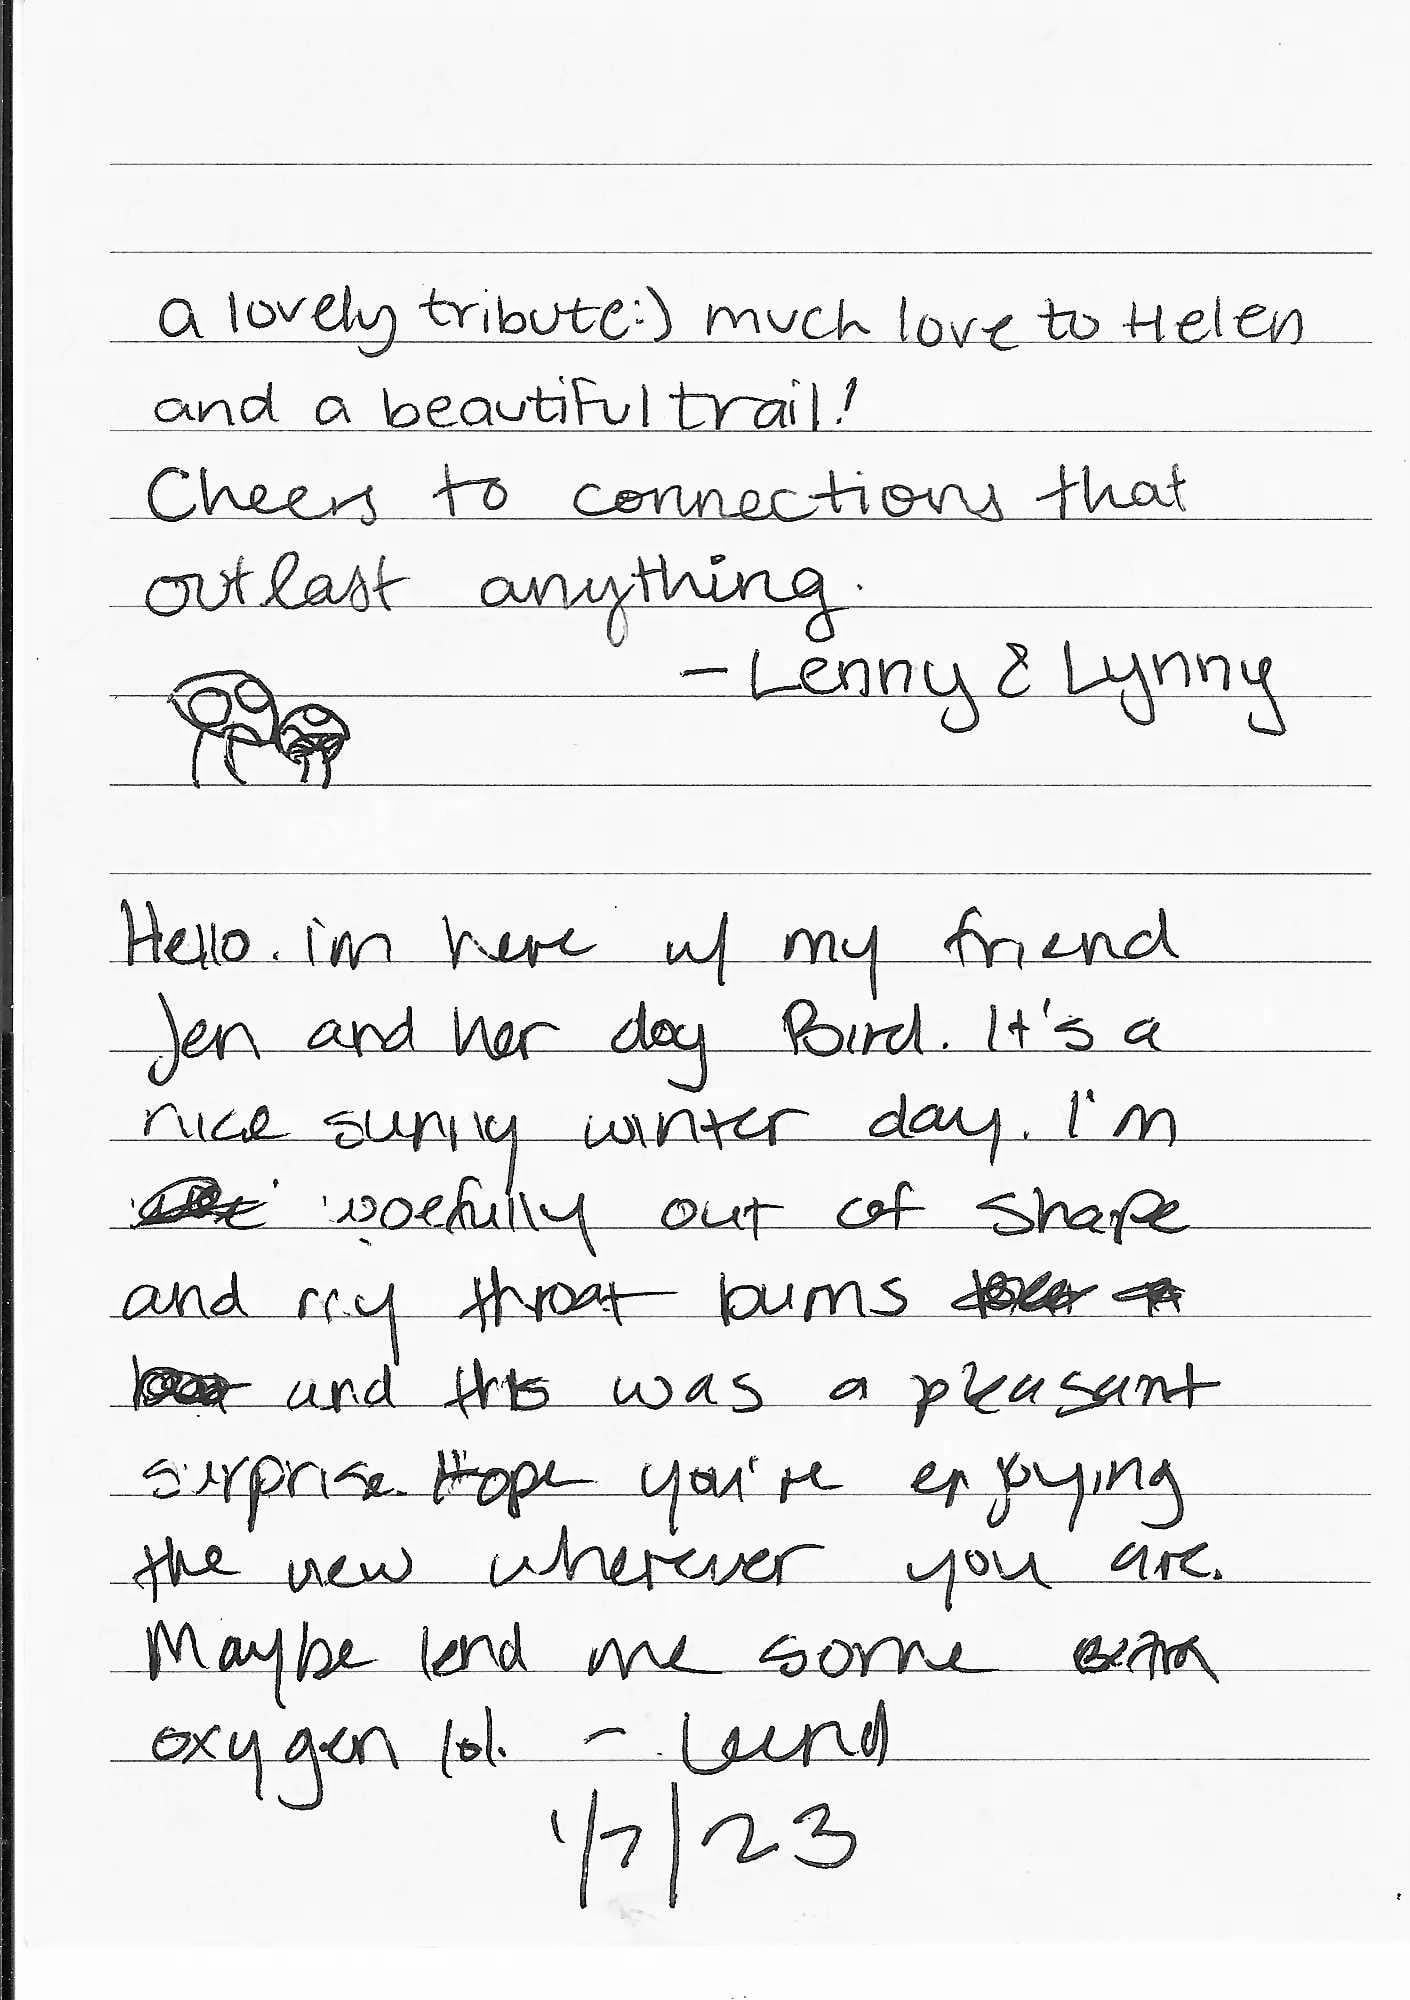 a lovely tribute:) much love to Helen
and a beautiful trail!
Cheers to connections that
outlast anything.
- Lenny & Lynny
Hello. i'm here w/ my friend
Jen and her dog Bird. It's a
nice sunny winter day. I'm
woefully out of shape
and my throat burns
and this was a pleasant
surprise. Hope you're enjoying
the view wherever you are.
Maybe lend me some extra
oxygen lol. -
1/7/23